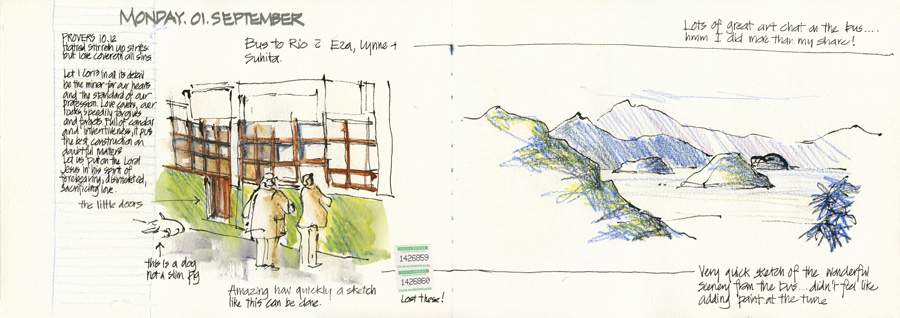 MONDAY. 01. SEPTEMBER
PROVERS 10.12
Hatred stirreth up strifes
but love covereth all sins
Let 1 Cor 13 in all its detail
be the mirror for our hearts
and the standard of our
profession. Love covers, over
looks speedily forgives
and forgets. Full of candor
and inventiveness, it puts
the best construction on
doubtful matters
Let us put on the Lord
Jesus in his spirit of
forebearing, disinterested,
sacrificing love.
the little doors
this is a dog
not a slim pig
Bus to Rio Eza, Lynne +
Sunita.
Amazing how quickly a sketch
like this can be done.
1426859
1426860
Lost these!
Lots of great art chat on the bus....
hmm I did more than my share!
Very quick sketch of the wonderful
scenery from the bus... didn't feel like
adding paint at the time